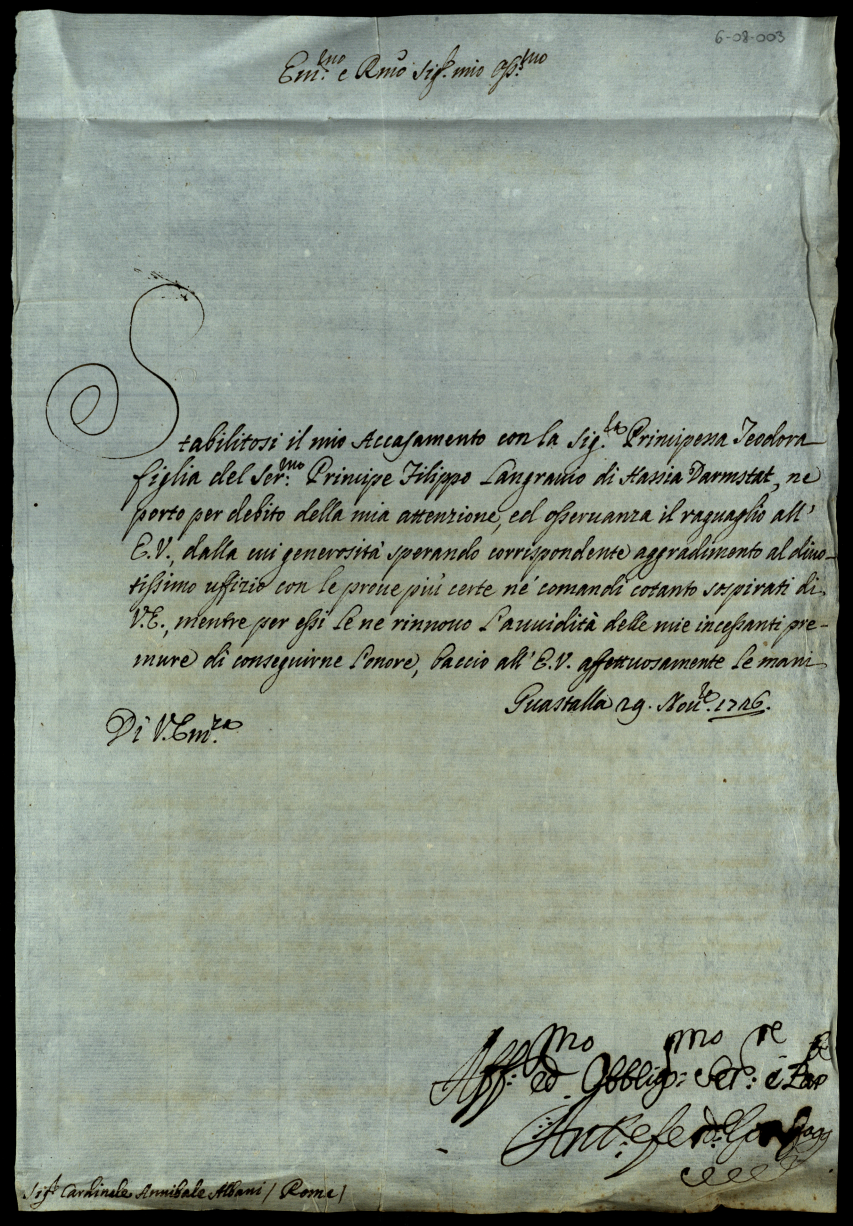 6-08-003
Em.mo e Rmo Sig.r mio Oss.mo
Stabilitosi il mio Accasamento con la Sig.ra Principessa Teodora
figlia del Ser.mo Principe Filippo Langravio di Hassia Darmstat, ne
porto per debito della mia attenzione, ed osservanza il raguaglio all'
E.V., dalla cui generosità sperando corrispondente aggradimento al divo-
tissimo uffizio con le prove più certe né comandi cotanto sospirati di
V.E., mentre per essi le ne rinnovo l'avvidità delle mie incessanti pre-
mure di conseguirne l'onore, baccio all'E.V. affettuosamente le mani
Guastalla 29. Nov.re 1726.
Di V. Em.za
Aff.mo ed Obblig.mo Ser.re
Ant.o Ferd.o Gonzaga
Sig.r Cardinale Annibale Albani / Roma /